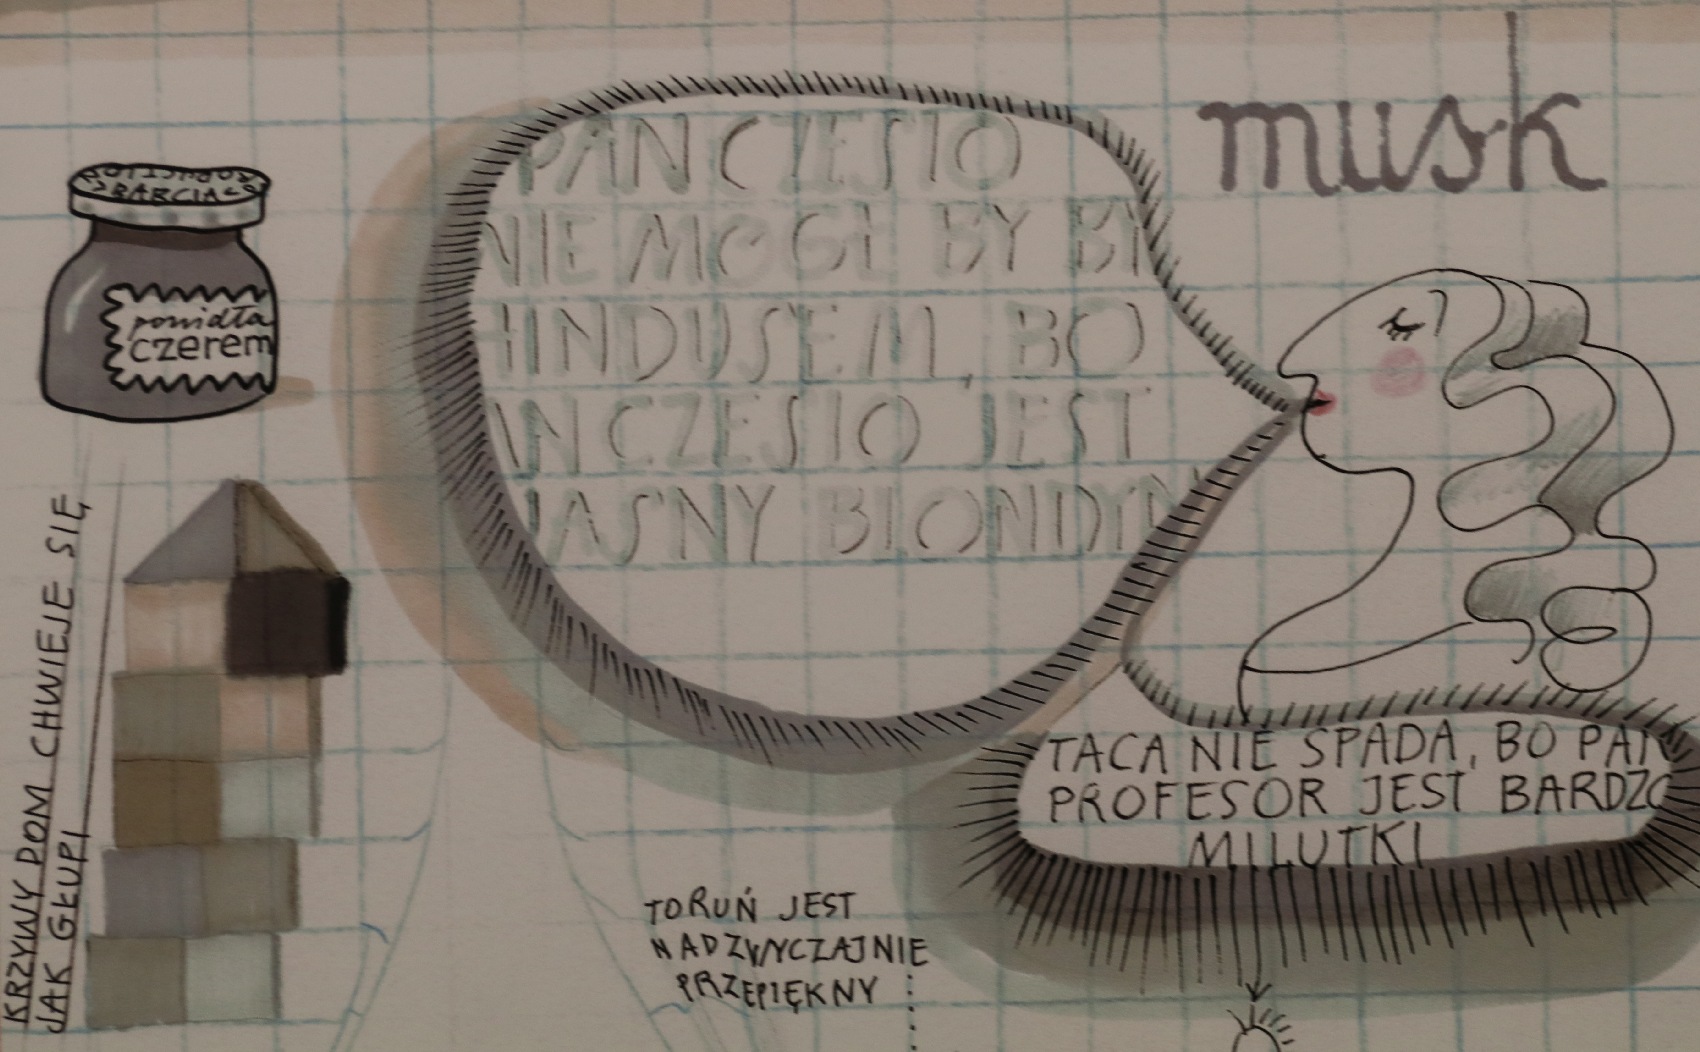 musk
BARCIA
powidła
czerem
PAN CZESIO
NIE MÓGŁ BY BY
HINDUSEM, BO
AN CZESIO JEST
JASNY BLONDYN
KRZYWY DOM CHWIEJE SIĘ
JAK GŁUPI
TACA NIE SPADA, BO PAN
PROFESOR JEST BARDZO
MILUTKI
TORUŃ JEST
NADZWYCZAJNIE
PRZEPIĘKNY